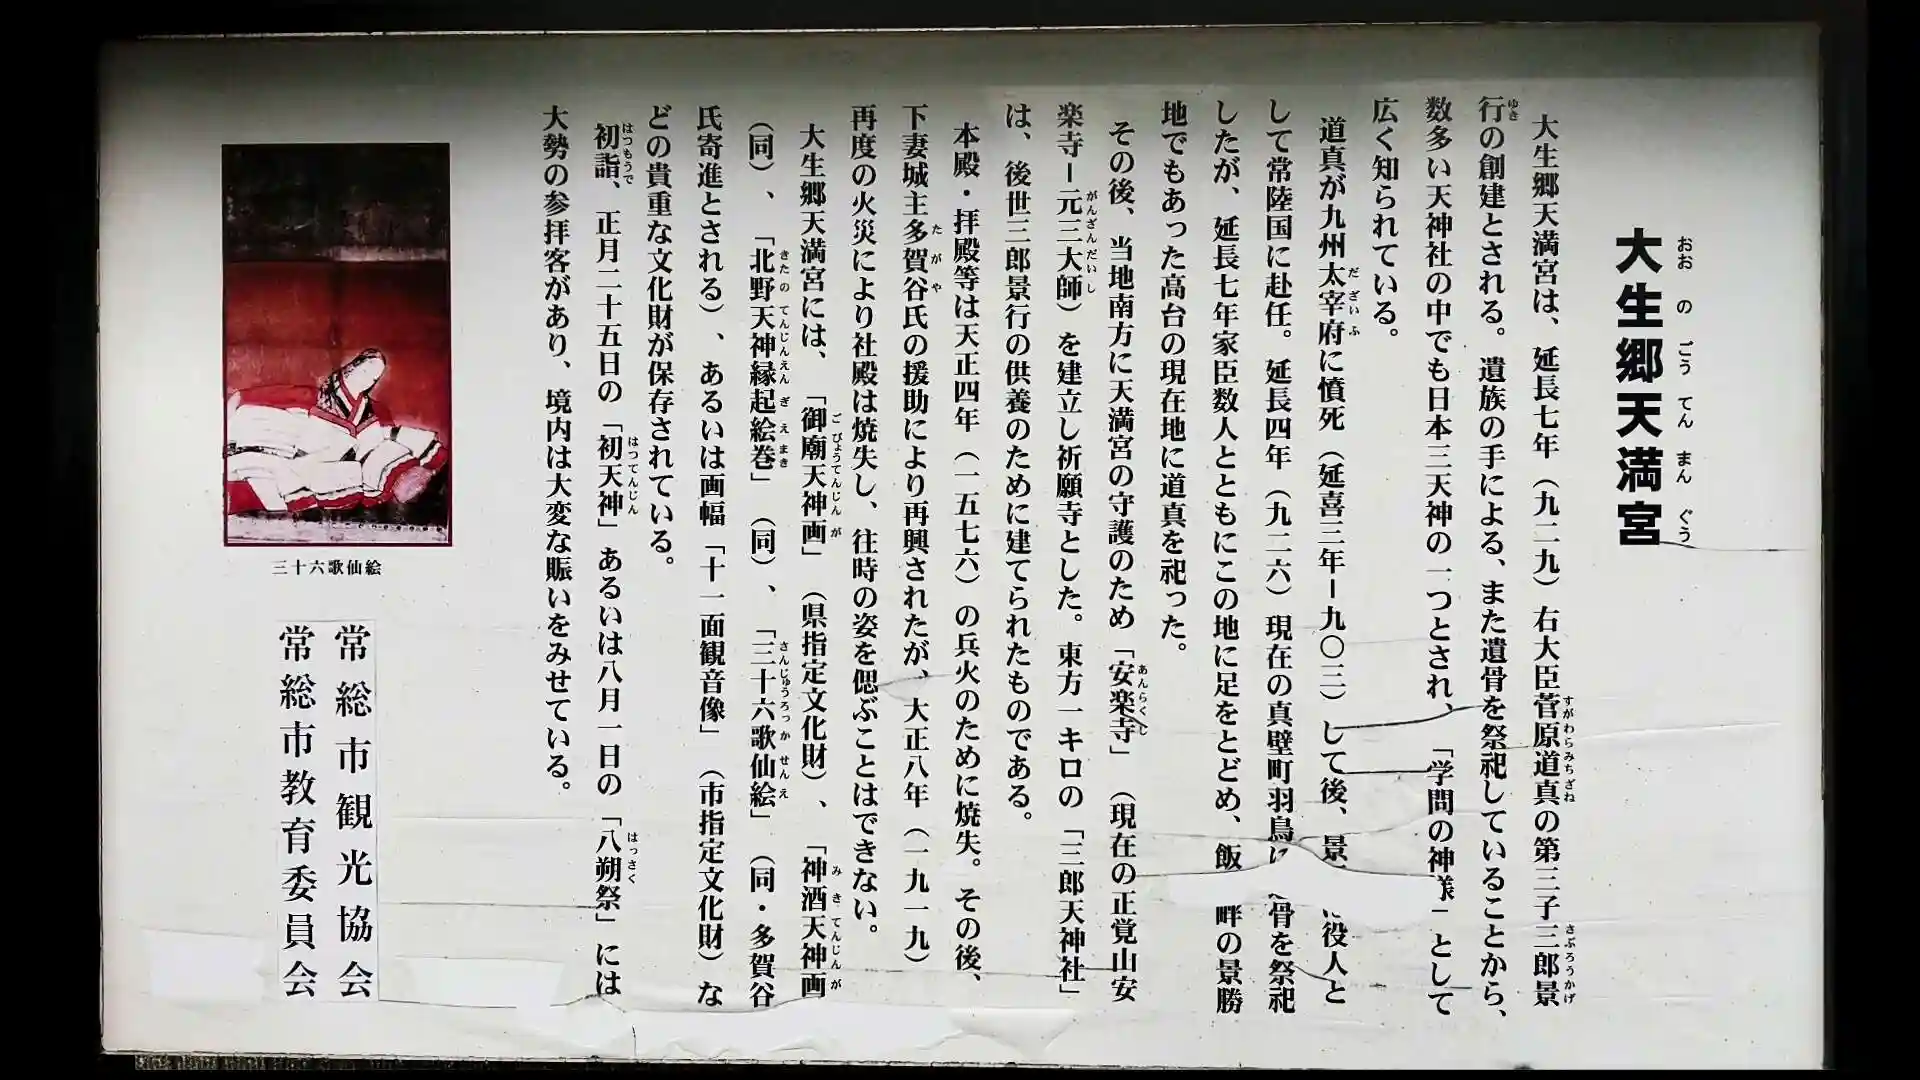 大生郷天満宮
おおのごうてんまんぐう
大生郷天満宮は、延長七年（九二九）右大臣菅原道真の第三子三郎景
すがわらみちざね
さぶろうかげ
行の創建とされる。遺族の手による、また遺骨を祭祀していることから、
ゆき
数多い天神社の中でも日本三天神の一つとされ、「学問の神様」として
広く知られている。
道真が九州太宰府に憤死（延喜三年ー九〇三）して後、景 役人と
だざいふ
して常陸国に赴任。延長四年（九二六）現在の真壁町羽鳥に 骨を祭祀
したが、延長七年家臣数人とともにこの地に足をとどめ、飯 畔の景勝
地でもあった高台の現在地に道真を祀った。
その後、当地南方に天満宮の守護のため「安楽寺」（現在の正覚山安
あんらくじ
楽寺ー元三大師）を建立し祈願寺とした。東方一キロの「三郎天神社」
がんざんだいし
は、後世三郎景行の供養のために建てられたものである。
本殿・拝殿等は天正四年（一五七六）の兵火のために焼失。その後、
下妻城主多賀谷氏の援助により再興されたが、大正八年（一九一九）
たがや
再度の火災により社殿は焼失し、往時の姿を偲ぶことはできない。
大生郷天満宮には、「御廟天神画」（県指定文化財）、「神酒天神画
ごびょうてんじんが
みきてんじんが
（同）、「北野天神縁起絵巻」（同）、「三十六歌仙絵」（同・多賀谷
きたのてんじんえんぎえまき
さんじゅうろっかせんえ
氏寄進とされる）、あるいは画幅「十一面観音像」（市指定文化財）な
どの貴重な文化財が保存されている。
初詣、正月二十五日の「初天神」あるいは八月一日の「八朔祭」には
はつもうで
はつてんじん
はっさく
大勢の参拝客があり、境内は大変な賑いをみせている。
三十六歌仙絵
常総市観光協会
常総市教育委員会